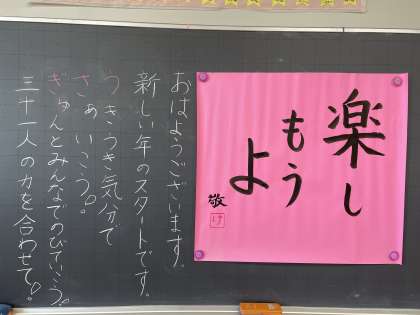 楽し
もう
よ
敬
け
おはようございます。
新しい年のスタートです。
うきうき気分で
さぁいこう。
ぎゅんとみんなでのびていこう。
三十一人の力を合わせて。